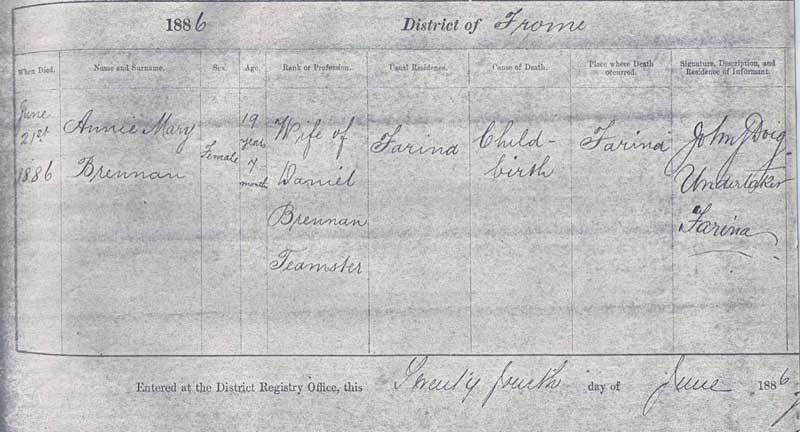 1886 District of Frome
When Died. Name and Surname. Sex. Age. Rank or Profession. Usual Residence. Cause of Death. Place where Death occurred. Signature, Description, and Residence of Informant.
June 21st 1886
Annie Mary
Brennan
Female
19
years
7
month
Wife of
Daniel
Brennan
Teamster
Farina
Child-
birth
Farina
John J Doig
Undertaker
Farina
Entered at the District Registry Office, this Twenty fourth day of June 1886